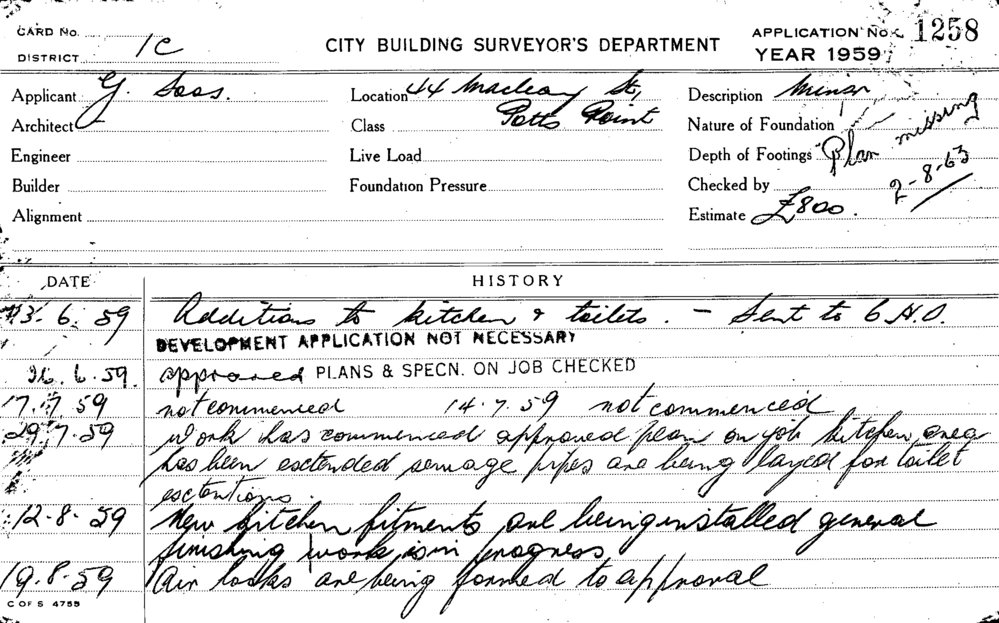 CARD No.
DISTRICT 1C
CITY BUILDING SURVEYOR'S DEPARTMENT
APPLICATION No. 1258
YEAR 1959
Applicant G. Soos.
Location 44 Macleay St,
Description Minor
Architect
Class Potts Point
Nature of Foundation
Engineer
Live Load
Depth of Footings Plan missing
Builder
Foundation Pressure
Checked by 2-8-63
Alignment
Estimate £800.
DATE
HISTORY
3. 6. 59 Additions to kitchen & toilets. - Sent to C.H.O.
DEVELOPMENT APPLICATION NOT NECESSARY
26. 6. 59. approved PLANS & SPECN. ON JOB CHECKED
17. 7. 59 not commenced 14. 7. 59 not commenced
29. 7. 59 Work has commenced approved plan on job kitchen area
has been esctended sewage pipes are being layed for toilet
esctentions.
12. 8. 59 New kitchen fitments are being installed general
finishing work is in progress
19. 8. 59 Air locks are being formed to approval
C OF S 4755